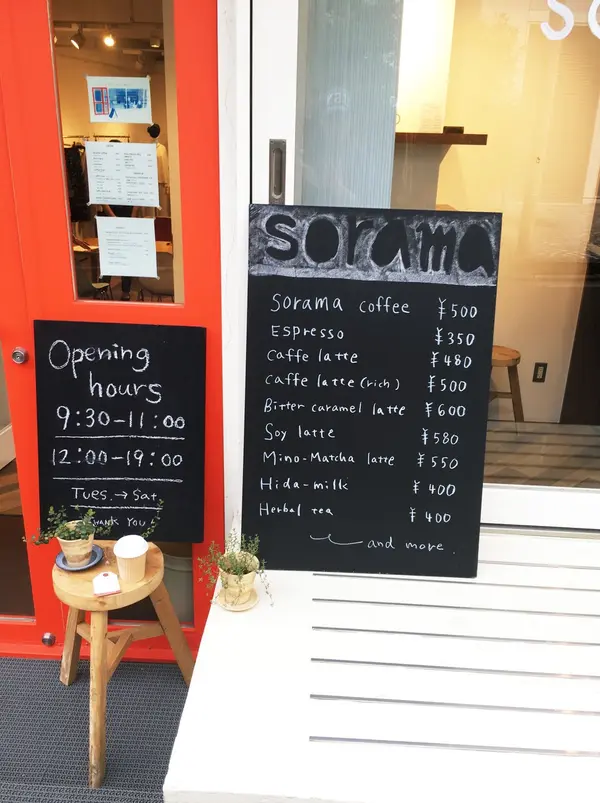 Opening
hours
9:30-11:00
12:00-19:00
Tues. → Sat.
THANK YOU
sorama
Sorama coffee ¥500
Espresso ¥350
Caffe latte ¥480
Caffe latte (rich) ¥500
Bitter caramel latte ¥600
Soy latte ¥580
Mino-Matcha latte ¥550
Hida-milk ¥400
Herbal tea ¥400
and more.